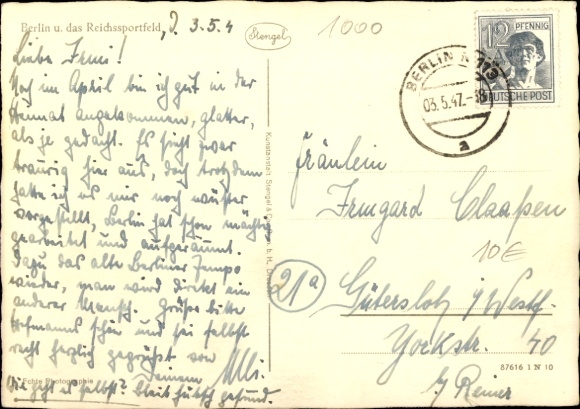 Berlin u. das Reichssportfeld, d. 3.5.4
Liebe Irmi!
Noch im April bin ich gut in der
Heimat angekommen, glatter,
als je gedacht. Es sieht zwar
traurig hier aus, doch trotzdem
hatte ich es mir noch wüster
vorgestellt, Berlin hat schon mächtig
gearbeitet und aufgeräumt.
Dazu das alte Berliner Tempo
wieder, man wird direkt ein
anderer Mensch. Grüße bitte
Hofmanns schön und sei selbst
recht herzlich gegrüßt von
Deinem Ulli.
Echte Photographie
Wie geht es selbst? Bleib hübsch gesund.
Stengel
1000
12 PFENNIG
DEUTSCHE POST
BERLIN N 113
03.5.47.-18
a
Kunstanstalt Stengel & Co. G. m. b. H.
Fräulein
Irmgard Claaßen
10€
21a
Gütersloh i/Westf.
Yorkstr. 40
b/ Reiner
87616 1 N 10